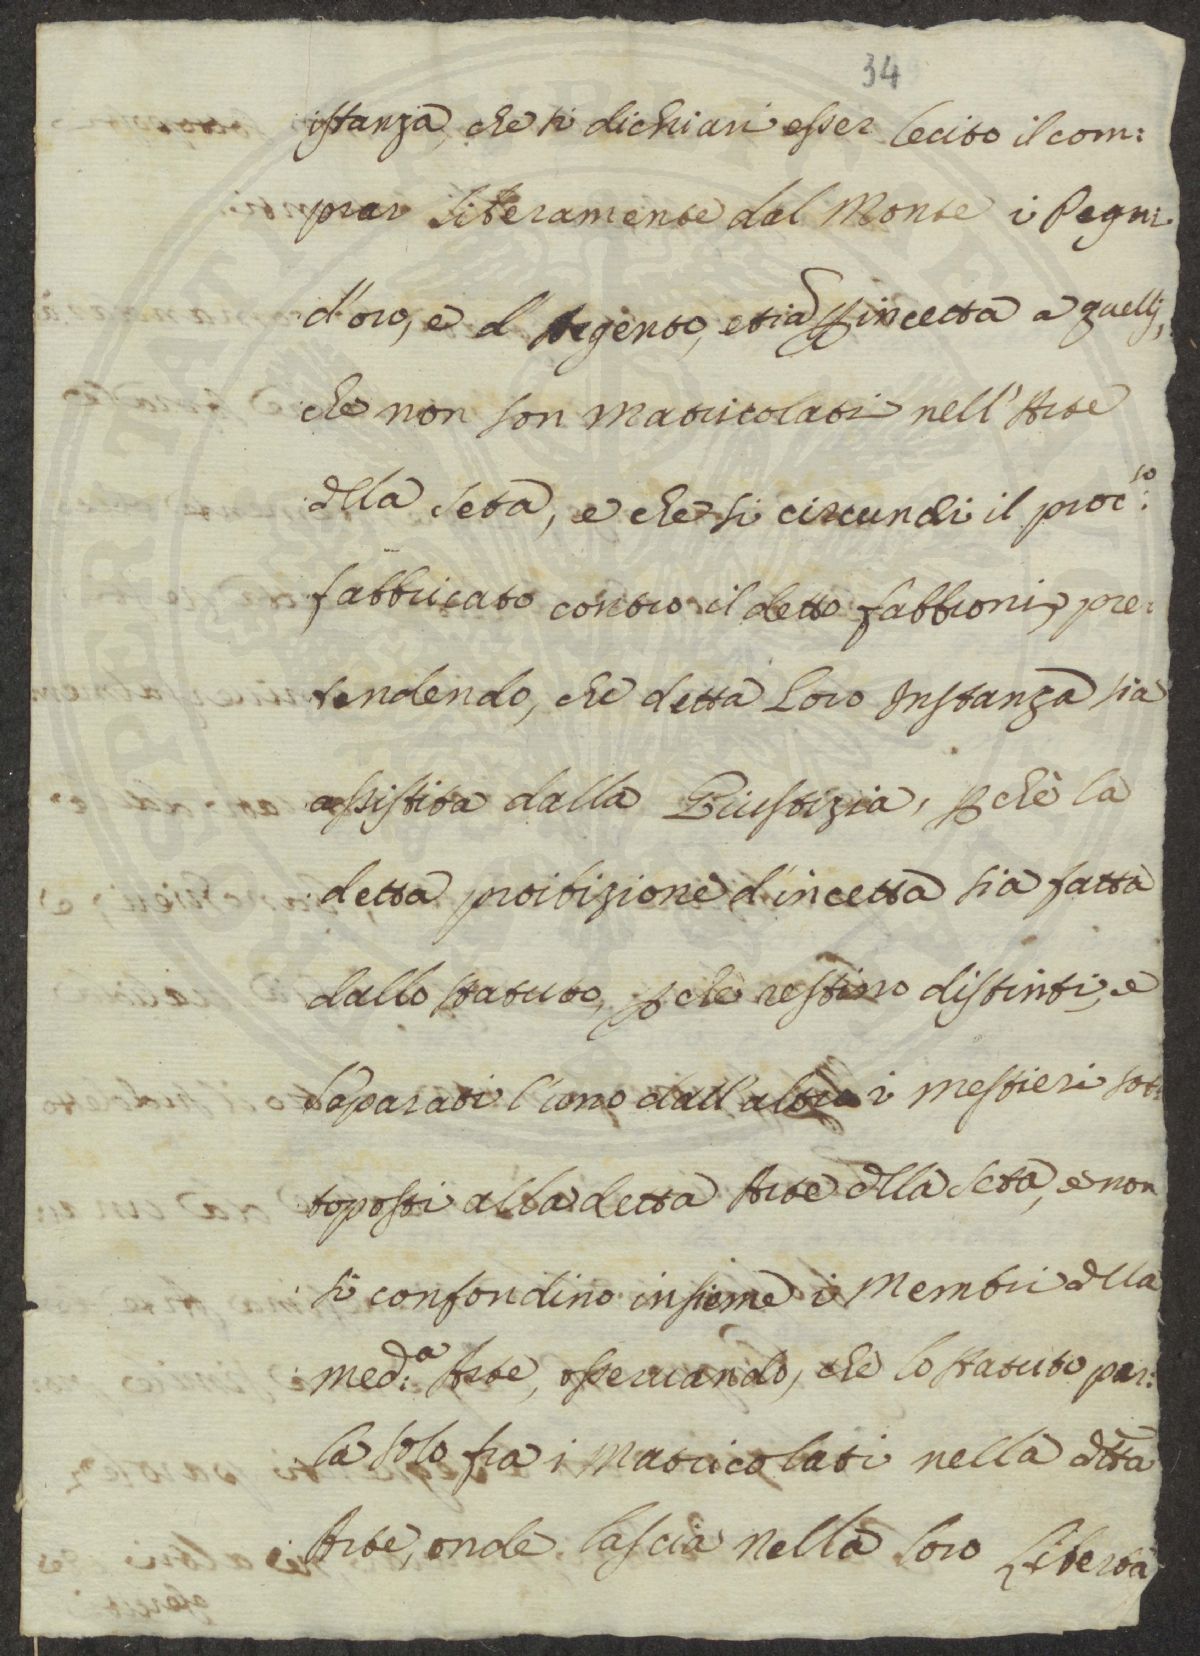 34
istanza, che si dichiari esser lecito il com:
prar liberamente dal Monte i Pegni
d'oro, e d'Argento, etiã p incetta a quelli,
che non son matricolati nell'Arte
dlla Seta, e che si circundi il proc:so
fabbricato contro il detto fabbroni, pre:
tendendo, che detta loro Instanza sia
assistita dalla Giustizia, p chè la
detta proibizione d'incetta sia fatta
dallo statuto, p che restino distinti, e
separati l'uno dall'altro i mestieri sot:
toposti alla detta Arte dlla Seta, e non
si confondino insieme i Membri dlla
med:a Arte, osservando, che lo statuto par:
la solo fra i matricolati nella dtta
Arte, onde lascia nella loro libertà